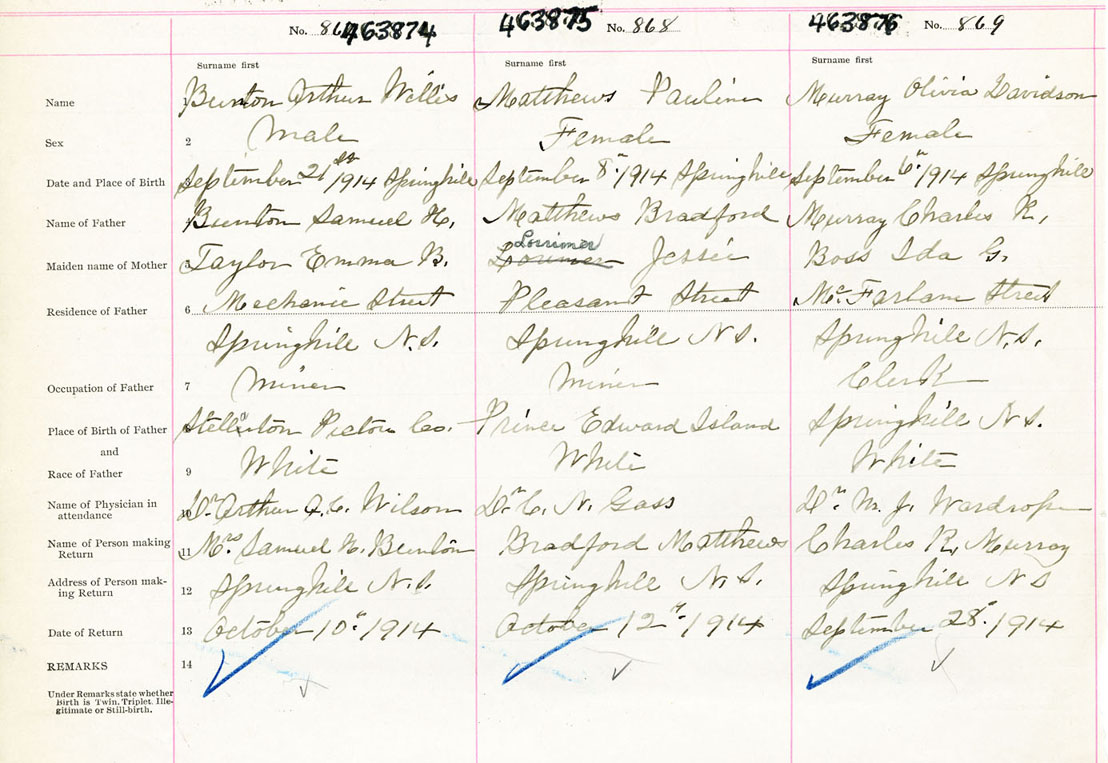 No. 86 463874 463875 No. 868 463876 No. 869
Surname first Surname first Surname first
Name 1 Bunton Arthur Willis Matthews Pauline Murray Olivia Davidson
Sex 2 Male Female Female
Date and Place of Birth September 21st 1914 Springhill September 8th 1914 Springhill September 6th 1914 Springhill
Name of Father 4 Bunton Samuel H. Matthews Bradford Murray Charles R.
Lorrimer
Maiden name of Mother 5 Taylor Emma B. Jessie Boss Ida G.
Residence of Father 6 Mechanic Street Pleasant Street McFarlane Street
Springhill N.S. Springhill N S. Springhill N.S.
Occupation of Father 7 Miner Miner Clerk
Place of Birth of Father Stellarton Pictou Co. Prince Edward Island Springhill N S.
and
Race of Father 9 White White White
Name of Physician in
attendance 10 Dr Arthur Wilson Dr C. N. Gass Dr M. J. Wardrope
Name of Person making
Return 11 Mrs Samuel H. Bunton Bradford Matthews Charles R. Murray
Address of Person mak-
ing Return 12 Springhill N.S. Springhill N.S. Springhill N S
Date of Return 13 October 10th 1914 October 12th 1914 September 28th 1914
REMARKS 14
Under Remarks state whether
Birth is Twin, Triplet, Ille-
gitimate or Still-birth.